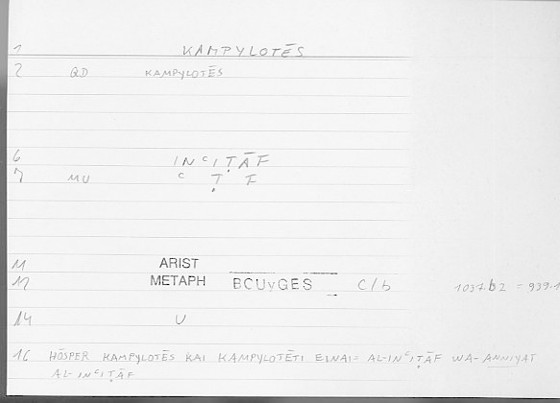 1 KAMPYLOTĒS
2 QD KAMPYLOTĒS
6 INᶜIṬĀF
7 MU ᶜ Ṭ F
11 ARIST
12 METAPH BCUyGES C/b 1031b2 = 939.1
14 U
16 HŌSPER KAMPYLOTĒS KAI KAMPYLOTĒTI EINAI = AL-INᶜIṬĀF WA-ANNIYAT
AL-INᶜIṬĀF